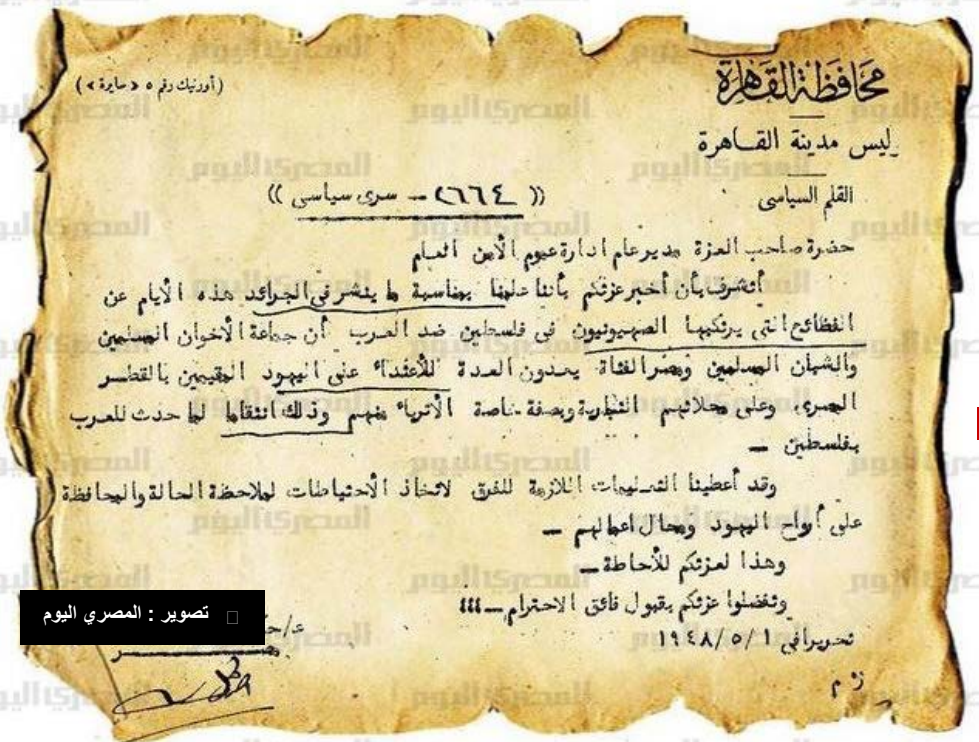 محافظة القاهرة
(أورنيك رقم ٥ « سايرة »)
ـليس مدينة القاهرة
القلم السياسى
(( ٢٦٦٤ – سرى سياسى ))
حضرة صاحب العزة مدير عام ادارة عموم الأمن العام
أتشرف بأن أخبر عزتكم بأننا علمنا بمناسبة ما ينشر فى الجرائد هذه الأيام عن
الفظائع التى يرتكبها الصهيونيون فى فلسطين ضد العرب أن جماعة الأخوان المسلمين
والشبان المسلمين ومصر الفتاة يعدون العدة للأعتداء على اليهود المقيمين بالقطر
المصرى وعلى محلاتهم التجارية وبصفة خاصة الأثرياء منهم وذلك انتقاما لما حدث للعرب
بفلسطين –
وقد أعطينا التعليمات اللازمة للفرق لاتخاذ الأحتياطات لملاحظة الحالة والمحافظة
على أرواح اليهود ومحال اعمالهم –
وهذا لعزتكم للأحاطة –
وتفضلوا عزتكم بقبول فائق الاحترام – ٤٤٤
تحريرا فى ١ /٥ /١٩٤٨
ز م
تصوير : المصري اليوم
المصرى اليوم